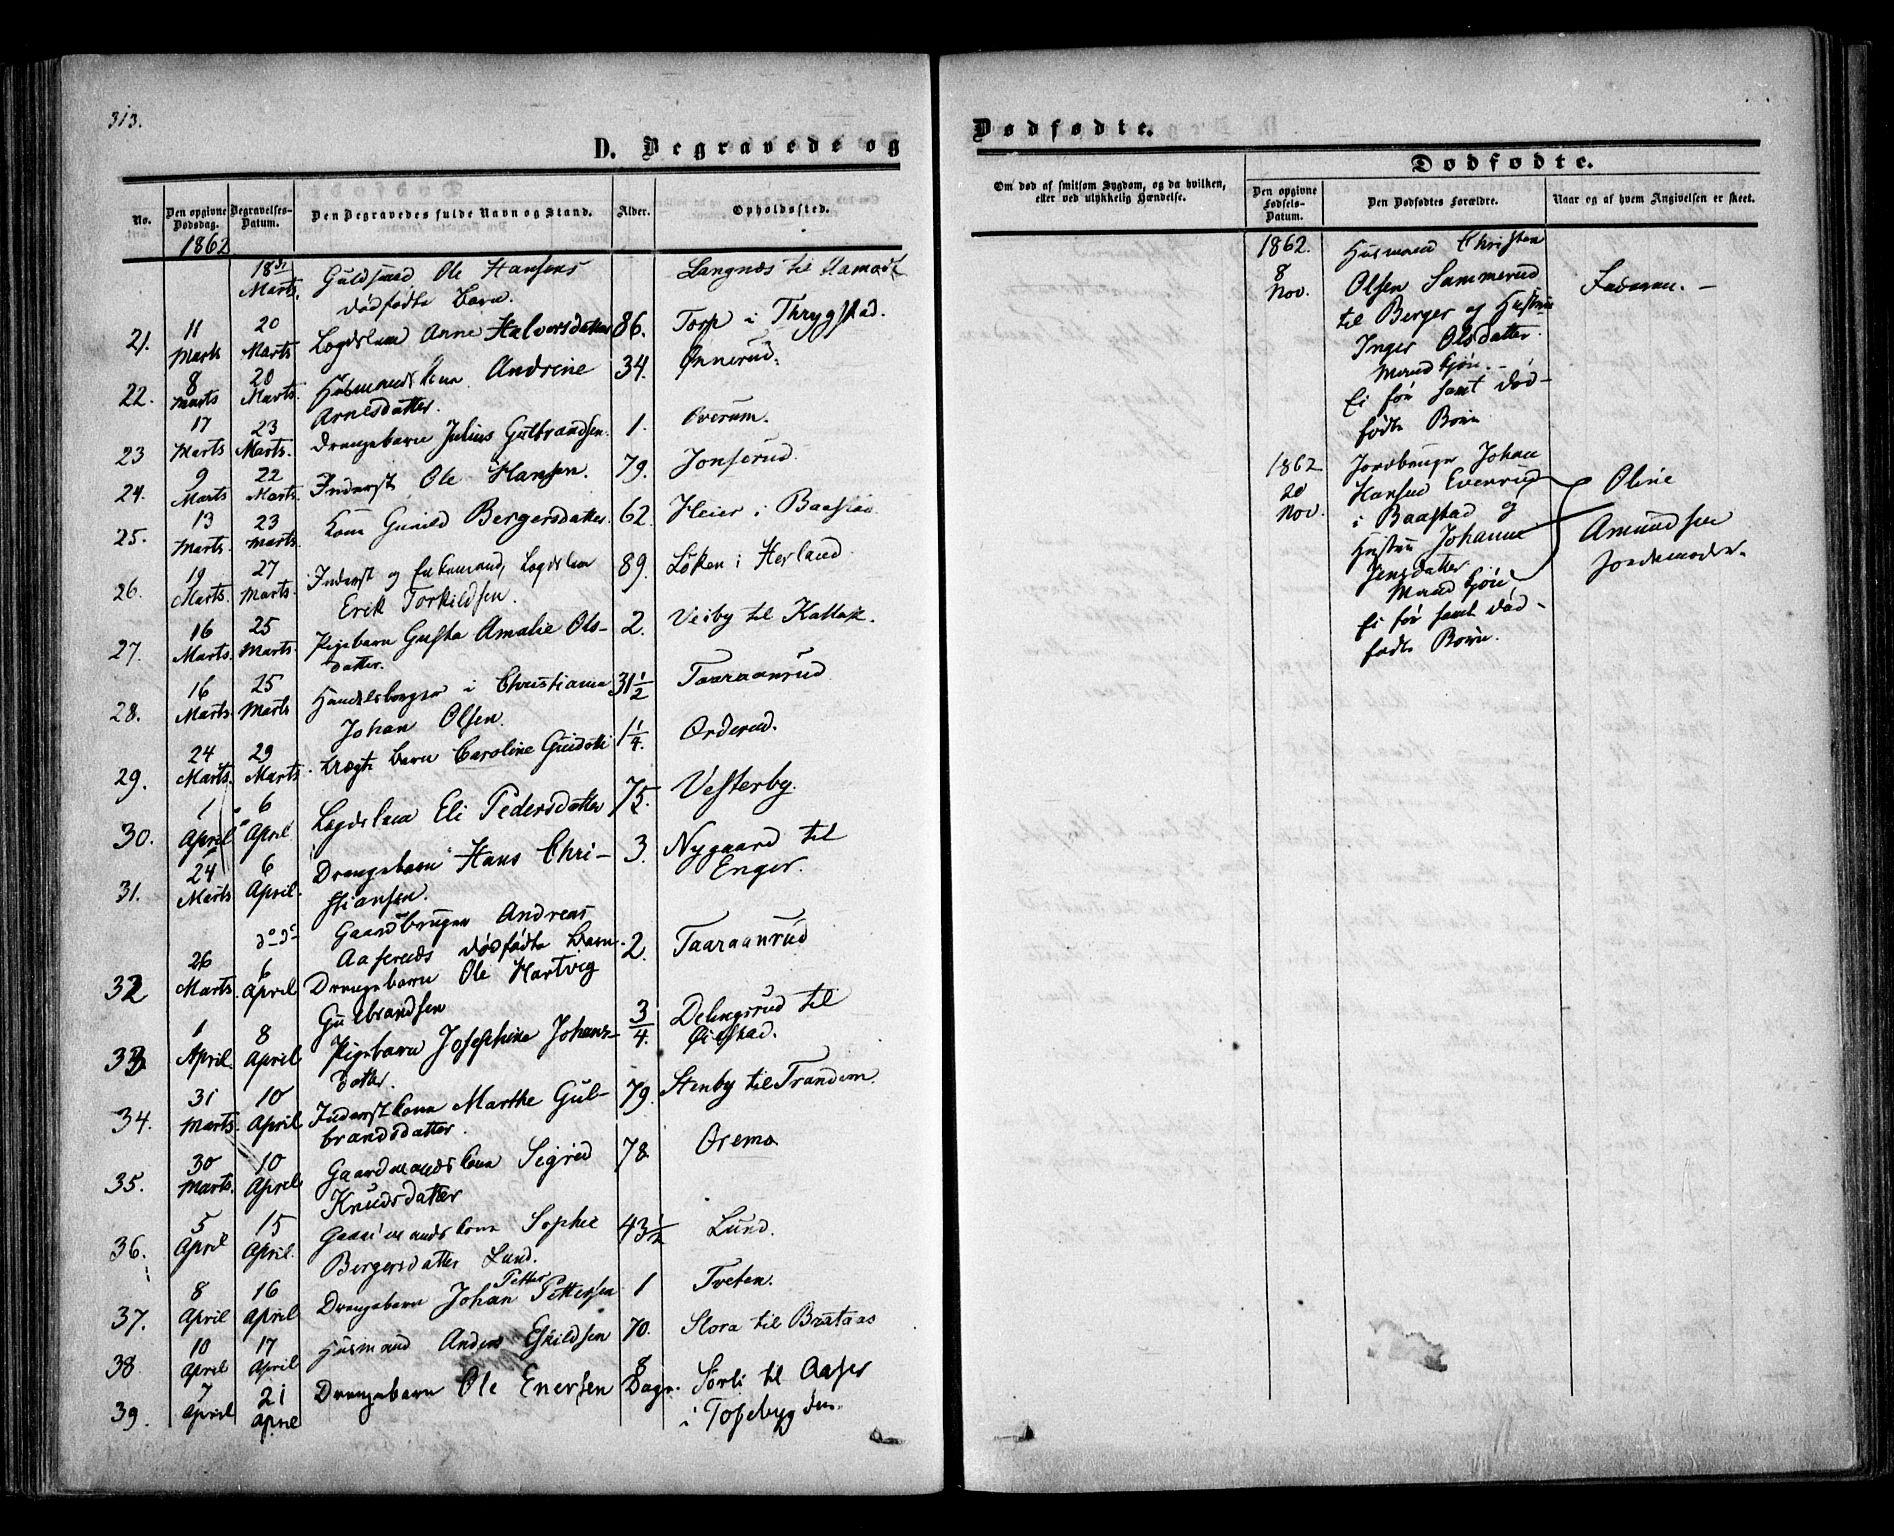 313.
D. Begravede og
No.
Den opgivne Dødsdag.
Begravelses-Datum.
Den Begravedes fulde Navn og Stand.
Alder.
Opholdssted.
1862
18de Marts. Guldsmed Ole Hansens dødfødte Barn. Langnæs til
21. 11 Marts 20 Marts Lægdslem Anne Halvorsdatter 86. Torp i Thrygstad.
22. 8 Marts 20 Marts. Husmandskona Andrine Arnesdatter. 34. Ønnerud.
23 17 Marts 23 Marts. Drengebarn Julius Gulbrandsen. 1. Overum.
24. 9 Marts 22 Marts. Inderst Ole Hansen. 79. Jonserud.
25. 13 Marts. 23 Marts. Kona Gunild Bergersdatter 62. Heier i Baastad
26. 19 Marts. 27 Marts. Inderst og Enkemand, Lægdslem Erik Torkildsen. 89. Løken i Herland.
27. 16 Marts. 25 Marts. Pigebarn Gusta Amalie Ols-
datter. 2. Veiby til
28. 16 Marts. 25 Marts Handelsborger i Christiania Johan Olsen. 31 1/2 Taaraanrud
29. 24 Marts. 29 Marts. Lægts Barn Caroline 1 1/4. Orderud.
30. 1 April 6 April Lægdslem Eli Pedersdatter 75. Vesterby.
31. 24 Marts 6 April. Drengebarn Hans Chri-
stiansen. 3. Nygaard til Enger.
do do Gaardbruger Andreas Aaseruds dødfødte Barn.
32 26 Marts. 6 April Drengebarn Ole Hartvig Gulbrandsen 2. Taaraanrud
33 1 April. 8 April Pigebarn Josephine Johans-
datter. 3/4. Delingsrud til Øiestad.
34. 31 Marts. 10 April Inderstkona Marthe Gul-
brandsdatter. 79. Stenby til Trandem.
35. 30 Marts. 10 April Gaardmandskona Sigrid Knudsdatter 78. Oremo
36. 5 April 15 April. Gaardmandskona Sophie Bergersdatter Lund. 43 1/2 Lund.
37. 8 April 16 April Drengebarn Johan Petter Pettersen 1 Tveten.
38 10 April 17 April Husmand Anders Eskildsen 70. Slora til Brataas
39. 7 April 21 April Drengebarn Ole Enersen 8 Dage. Sørli til Aaser i
Dødfødte.
Om død af smitsom Sygdom, og da hvilken, eller ved ulykkelig Hændelse.
Dødfødte.
Den opgivne Fødsels-Datum.
Den Dødfødtes Forældre.
Naar og af hvem Angivelsen er skeet.
1862. 8 Nov.
Husmand Christen
Olsen Sammerud
til Berger og Hustru
Inger Olsdatter.
Mandkjøn. -
Ei før havt død-
fødte Børn
Faderen. -
1862 20 Nov.
Jordbruger Johan
Hansen Evenrud
i Baastad og
Hustru Johanne
Jensdatter
Mandkjøn
Ei før havt død-
fødte Børn.
Oline
Amundsen
Jordemoder.